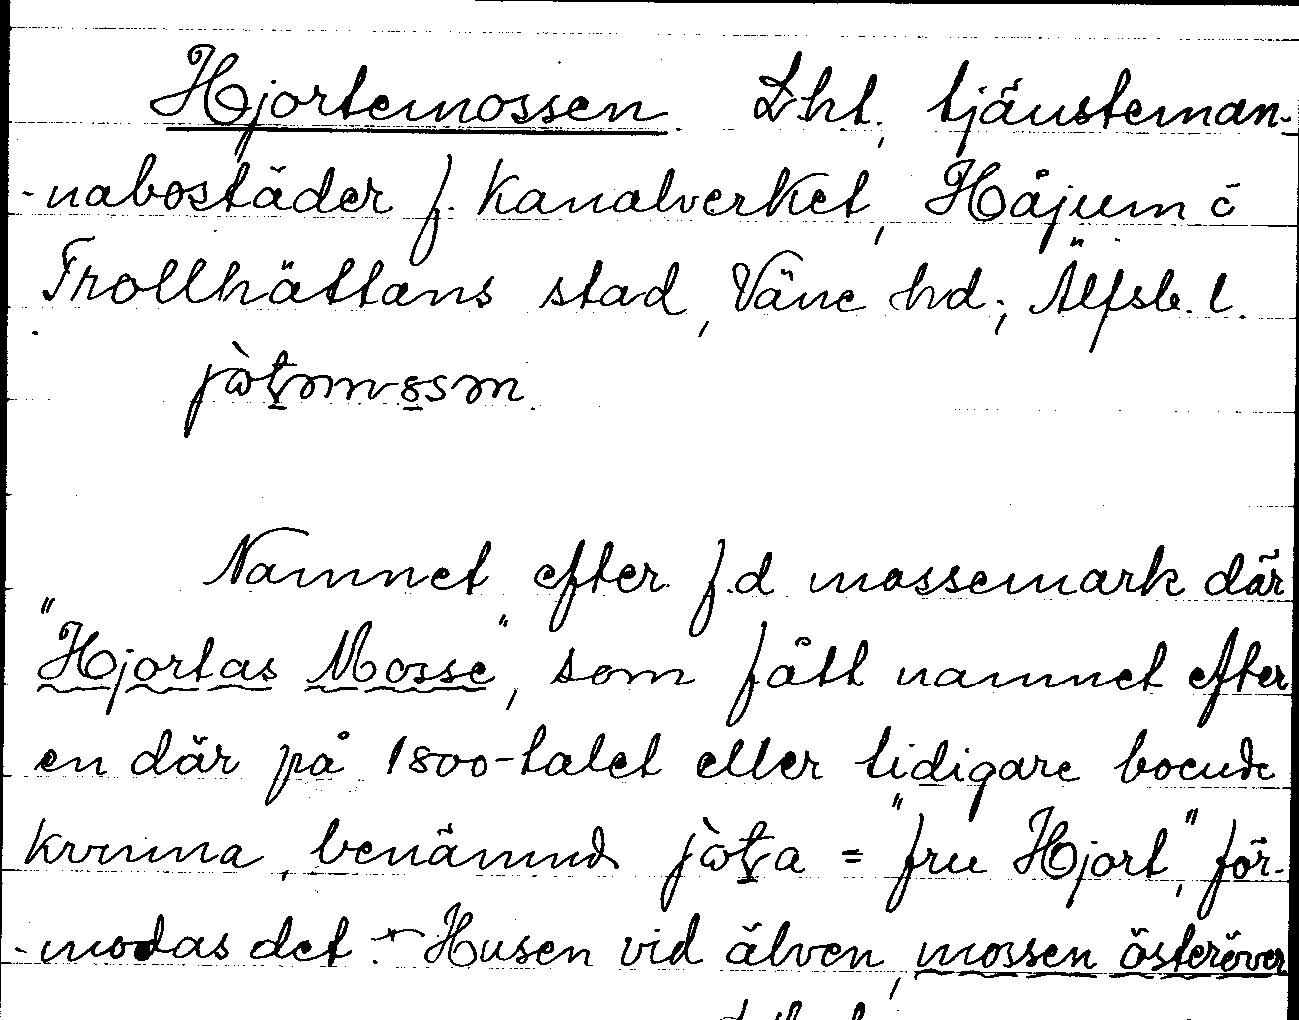 Hjortemossen. Lht, tjänsteman-
-nabostäder f. Kanalverket, Håjum o
Trollhättans stad, Väne hd; Älfsb. l.
Namnet efter f.d mossemark där
"Hjortas Mosse", som fått namnet efter
en där på 1800-talet eller tidigare boende
kvinna, benämnd = "fru Hjort", för-
-modas det. - Husen vid älven, mossen österöver